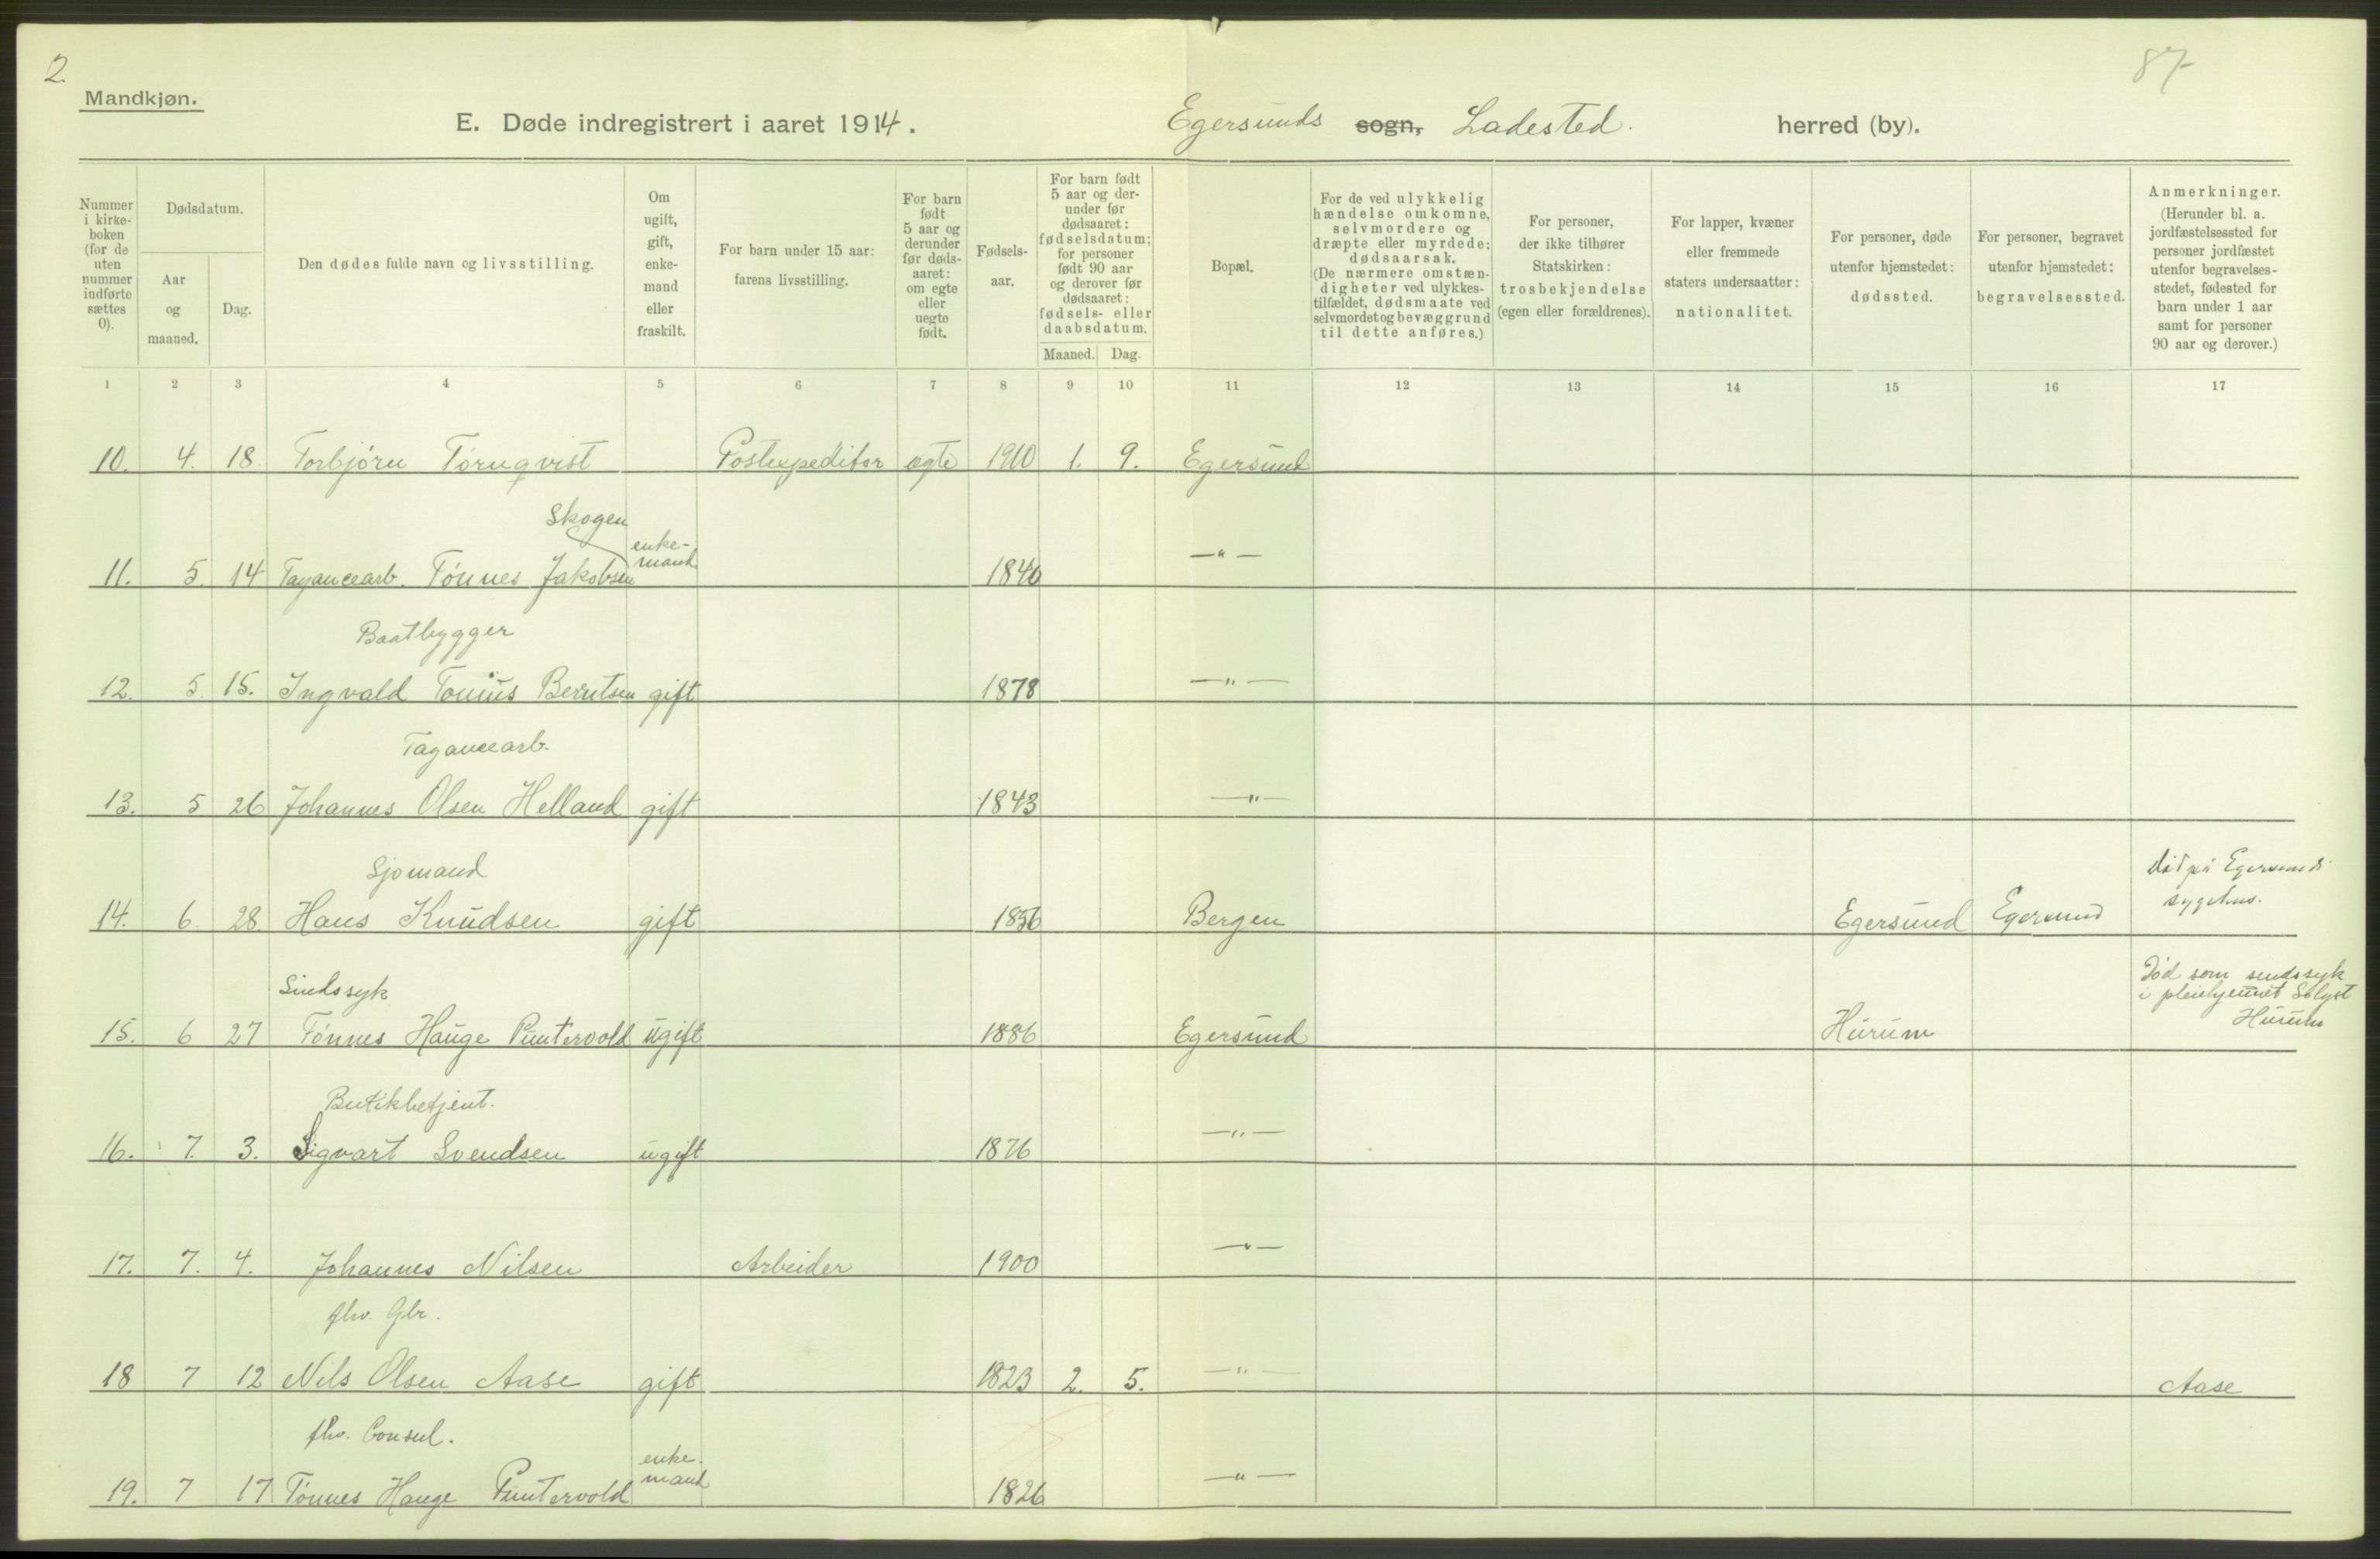 2.
87
Mandkjøn.
E. Døde indregistrert i aaret 1914.
Egersunds sogn, Ladested. herred (by).
Nummer i kirke-boken (for de uten nummer indførte sættes 0).
Dødsdatum.
Aar og maaned.
Dag.
Den dødes fulde navn og livsstilling.
Om ugift, gift, enke-mand eller fraskilt.
For barn under 15 aar: farens livsstilling.
For barn født 5 aar og derunder før døds-aaret: om egte eller uegte født.
Fødsels-aar.
For barn født 5 aar og der-under før dødsaaret: fødselsdatum; for personer født 90 aar og derover før dødsaaret: fødsels- eller daabsdatum.
Maaned. Dag.
Bopæl.
For de ved ulykkelig hændelse omkomne, selvmordere og dræpte eller myrdede: dødsaarsak. (De nærmere omstæn-digheter ved ulykkes-tilfældet, dødsmaate ved selvmordet og bevæggrund til dette anføres.)
For personer, der ikke tilhører Statskirken: trosbekjendelse (egen eller forældrenes).
For lapper, kvæner eller fremmede staters undersaatter: nationalitet.
For personer, døde utenfor hjemstedet: dødssted.
For personer, begravet utenfor hjemstedet: begravelsessted.
Anmerkninger. (Herunder bl. a. jordfæstelsessted for personer jordfæstet utenfor begravelses-stedet, fødested for barn under 1 aar samt for personer 90 aar og derover.)
1 2 3 4 5 6 7 8 9 10 11 12 13 14 15 16 17
10. 4. 18. Torbjörn Törnqvist Postexpeditør ægte 1910 1. 9. Egersund
Skogen
11. 5. 14 Fayancearb. Tönnes Jakobsen enke-mand 1840 —"—
Baatbygger
12. 5. 15. Ingvald Tonius Berntsen gift 1878 —"—
Fayancearb.
13. 5 26 Johannes Olsen Helland gift 1843 —"—
Sjomand
14. 6. 28. Hans Knudsen gift 1856 Bergen Egersund Egersund död på Egersunds sygehus.
Sindssyk
15. 6 27 Tönnes Hauge Puntervold ugift 1886 Egersund Hurum Död som sindssyk i pleiehjemmet Solyst Hurum
Butikbetjent.
16. 7. 3. Sigvart Svendsen ugift 1876 —"—
17. 7. 4. Johannes Nilsen Arbeider 1900 —"—
fhv. Gbr.
18 7 12 Nils Olsen Aase gift 1823 2. 5. —"— Aase
fhv. Consul.
19. 7 17 Tönnes Hauge Puntervold enke-mand 1826 —"—